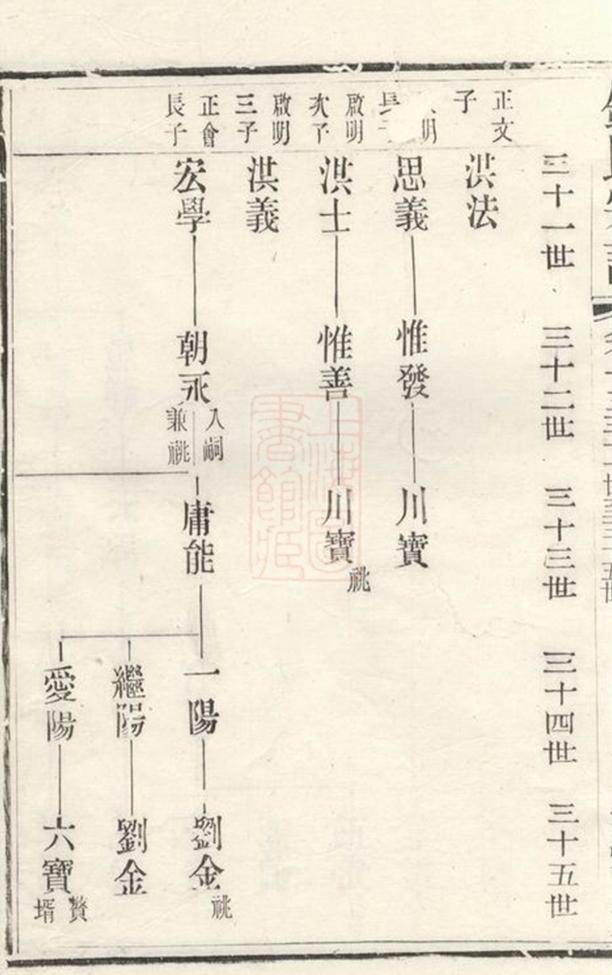 三十一世 三十二世 三十三世 三十四世 三十五世
正文
子
洪法
明
長子
思義 惟發 川寶
啟明
次子
洪士 惟善 川寶 祧
啟明
三子
洪義
正會
長子
宏學 朝永 入嗣
兼祧
庸能 一陽 劉金 祧
繼陽 劉金
愛陽 六寶 贅
壻
上海圖書館藏